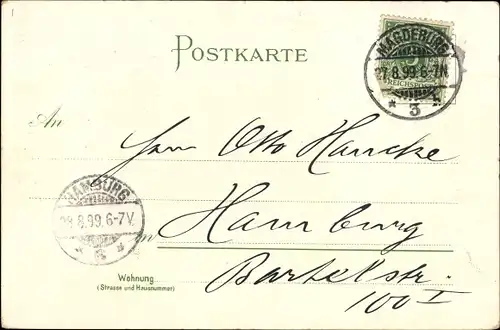 POSTKARTE
MAGDEBURG
27.8.99.6-7N
REICHSPOST
* 3 k
An
Herrn Otto Hancke
HAMBURG
28.8.99.6-7V.
in Hamburg
Wohnung
(Strasse und Hausnummer)
Bartelsstr.
100 I